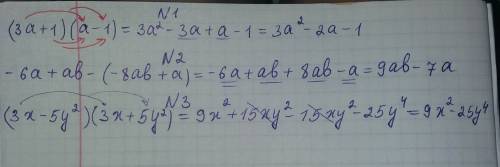 N1
(3a+1)(a-1) = 3a² - 3a + a - 1 = 3a² - 2a - 1
N2
- 6a + ab - (-8ab + a) = -6a + ab + 8ab - a = 9ab - 7a
N3
(3x - 5y²)(3x + 5y²) = 9x² + 15xy² - 15xy² - 25y⁴ = 9x² - 25y⁴